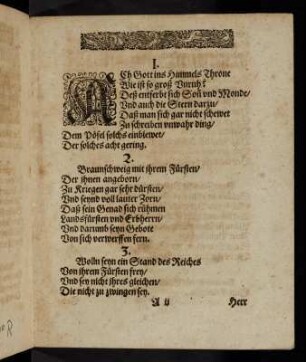 1.
ACh Gott ins Himmels Throne
Wie ist so groß Vnruh?
Deß entferbt sich Soñ vnd Monde/
Vnd auch die Stern darzu/
Daß man sich gar nicht schewet
Zu schreiben vnwahr ding/
Dem Pöfel solchs einblewet/
Der solches acht gering.
2.
Braunschweig mit ihrem Fürsten/
Der ihnen angeborn/
Zu Kriegen gar sehr dürsten/
Vnd seynd voll lauter Zorn/
Daß sein Genad sich rühmen
Landsfürsten vnd Erbherrn/
Vnd darumb seyn Gebote
Von sich verwerffen fern.
3.
Wolln seyn ein Stand des Reiches
Von ihrem Fürsten frey/
Vnd sey nicht ihres gleichen/
Die nicht zu zwingen sey.
A ii
Herr